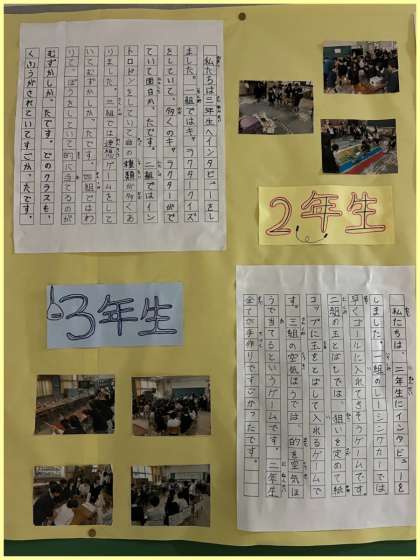 私たちは三年生へインタビューをし
ました。一組ではキャラクタークイズ
をしていて、多くのキャラクターがで
ていて面白かったです。二組ではイン
トロドンをしていて曲の種類が多くあ
りました。三組では連想ゲームをして
いてむずかしかったです。四組ではわ
りばしてっぽうをしていて的に当てるのが
むずかしかったです。どのクラスも、
くふうがされていてすごかったです。
2年生
3年生
私たちは、二年生にインタビューを
しました。一組のレーシングカーでは
早くゴールに入れてきそうゲームです。
二組の玉とばしでは、狙いを定めて紙
コップに玉をとばして入れるゲームで
す。三組の空気ほうでは、的を空気ほ
うで当てるというゲームです。二年生
全て手作りですごかったです。